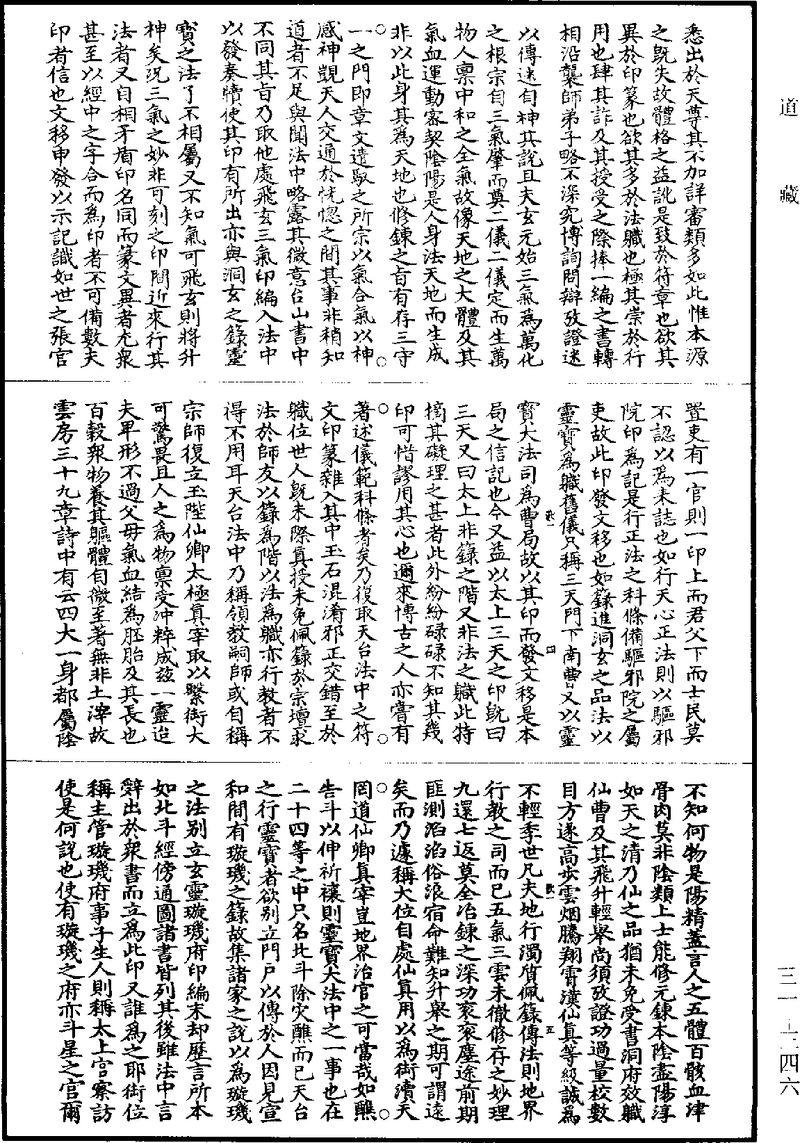 道藏
悉出於天尊其不加詳審類多如此惟本源
之旣失故體格之益訛是致於符章也欲其
異於印篆也欲其多於法職也極其崇於行
用也肆其詐及其授受之際捧一編之書轉
相沿襲師弟子略不深究博詢問辯攷證迷
以傳迷自神其說且夫玄元始三氣為萬化
之根宗自三氣肇而奠二儀二儀定而生萬
物人稟中和之全氣故像天地之大體及其
氣血運動審契陰陽是人身法天地而生成
非以此身其為天地也修鍊之旨有存三守
一之門即章文遣馭之所宗以氣合氣以神
感神覬天人交通於恍惚之間其事非稍知
道者不足與聞法中略露其微意台山書中
不同其旨乃取他處飛玄三氣印編入法中
以發奏牘使其印有所出亦與洞玄之錄靈
寶之法了不相屬又不知氣可飛玄則將升
神矣況三氣之妙非可刻之印間近來行其
法者又自相矛盾印名同而篆文異者尤衆
甚至以經中之字合而為印者不可備數夫
印者信也文移申發以示記識如世之張官
置吏有一官則一印上而君父下而士民莫
不認以為未誌也如行天心正法則以驅邪
院印為記是行正法之科條備驅邪院之屬
吏故此印發文移也如錄進洞玄之品法以
靈寶為職舊儀只稱三天門下南曹又以靈
寶大法司為曹局故以其印而發文移是本
局之信記也今又益以太上三天之印旣曰
三天又曰太上非籙之階又非法之職此特
摘其礙理之甚者此外紛紛碌碌不知其幾
印可惜謬用其心也邇來博古之人亦嘗有
著述儀範科條者矣乃復取天台法中之符
文印篆雜入其中玉石混淆邪正交錯至於
職位世人旣未際真授未免佩籙於宗壇求
法於師友以籙為階以法為職亦行教者不
得不用耳天台法中乃稱領教嗣師或自稱
宗師復立玉陛仙卿太極真宰取以繫銜大
可驚畏且人之為物禀受沖粹成茲一靈迨
夫畀形不過父母氣血結為胚胎及其長也
百穀衆物養其軀體自微至著無非土滓故
雲房三十九章詩中有云四大一身都屬陰
不知何物是陽精蓋言人之五體百骸血津
骨肉莫非陰類上士能修元鍊本陰盡陽淳
如天之清乃仙之品猶未免受書洞府效職
仙曹及其飛升輕舉尚須攷證功過量校數
目方遂高步雲烟騰翔霄漢仙真等級誠為
不輕季世凡夫地行濁質佩籙傳法則地界
行教之司而已五氣三雲未徹修存之妙理
九還七返莫全冶鍊之深功衮衮塵途前期
匪測滔滔俗浪宿命難知升舉之期可謂遠
矣而乃遽稱大位自處仙真用以為銜瀆天
罔道仙卿真宰豈地界治官之可當哉如醮
告斗以伸祈禳則靈寶大法中之一事也在
二十四等之中只名北斗除灾醮而已天台
之行靈寶者欲別立門戶以傳於人因見宣
和間有璇璣之錄故集諸家之說以為璇璣
之法別立玄靈璇璣府印編末却歷言所本
如北斗經傍通圖諸書皆列其後雖法中言
辭出於衆書而立為此印又誰為之耶銜位
稱主管璇璣府事子生人則稱太上宮察訪
使是何說也使有璇璣之府亦斗星之宮爾
三一—三四六